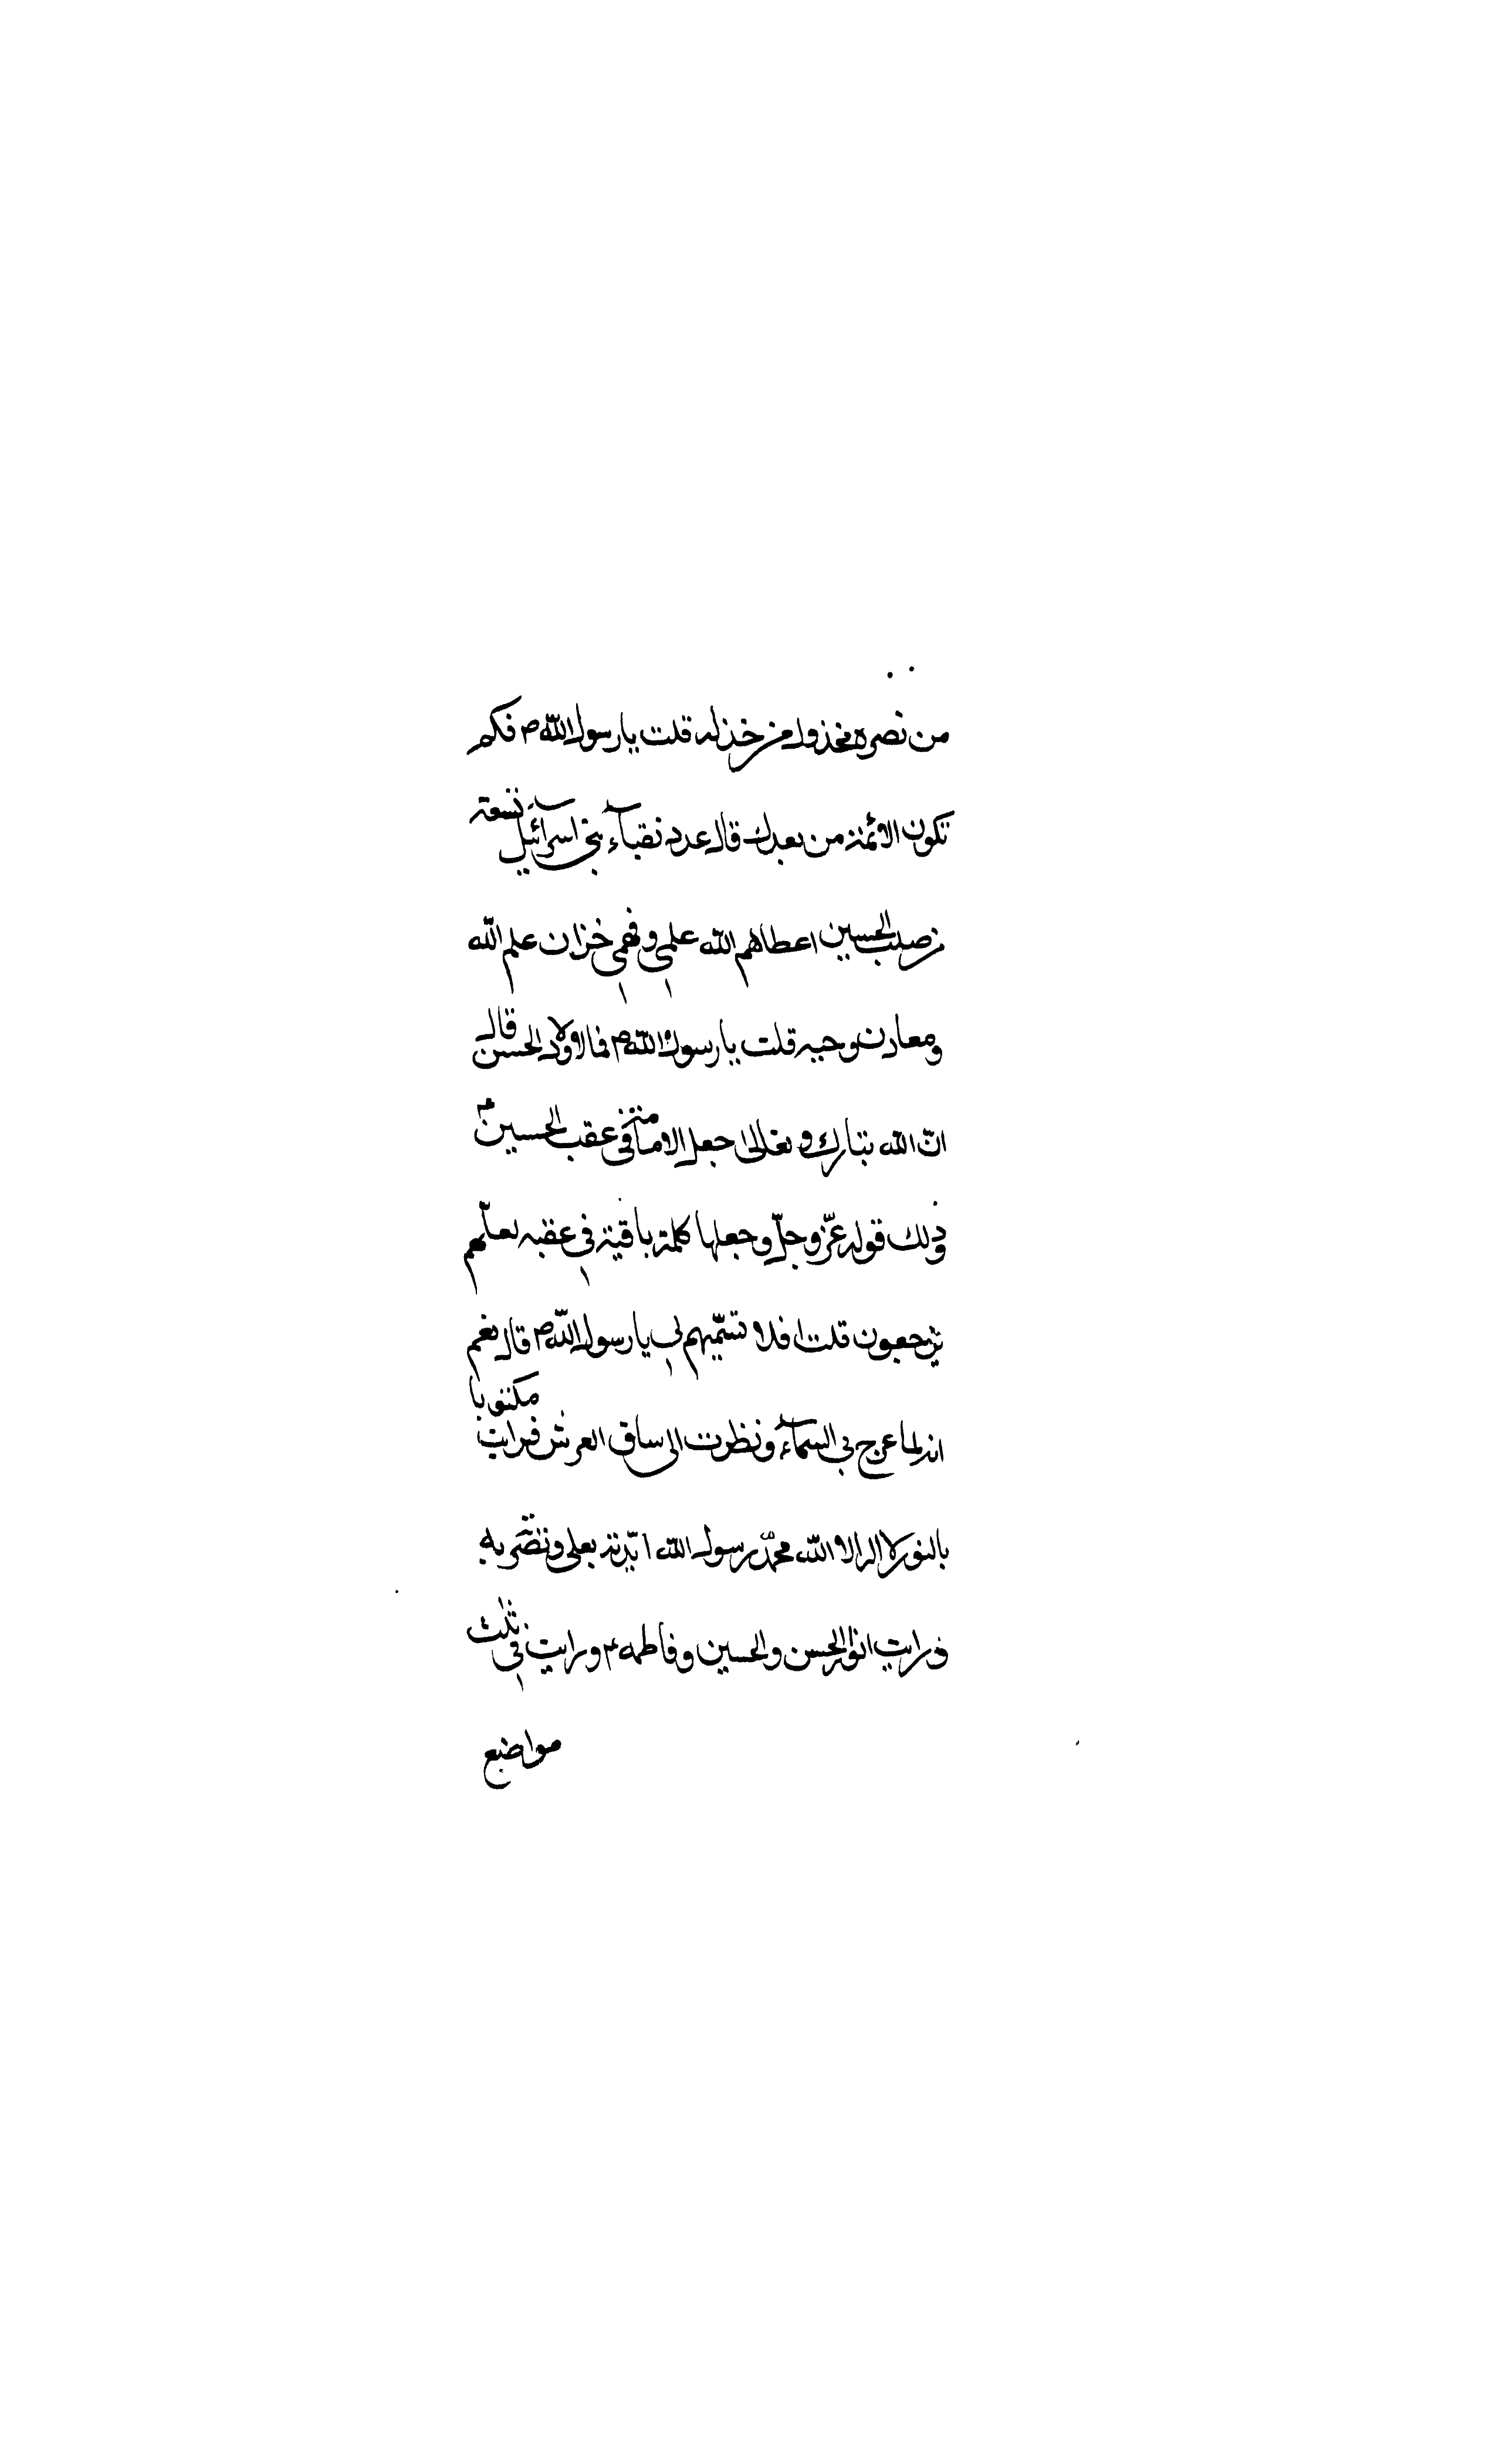 من نصره مخذول من خذله قلت يا رسول الله ص فكم
تكون الائمة من بعدك قال عدد نقبآء بنى اسرآئيل تسعة
من صلب الحسين اعطاهم الله علمي وفهمي خزان علم الله
ومعادن وحيه قلت يا رسول الله ص فما لاولاد الحسن قال
انّ الله تبارك وتعالى جعل الامامة في عقب الحسين ع
وذلك قوله عزّ وجلّ وجعلها كلمة باقية في عقبه لعلّهم
يرجعون قلت افلا تسمّيهم لي يا رسول الله ص قال نعم
انه لما عرج بي السمآء ونظرت الى ساق العرش فرايت مكتوبا
بالنور لا اله الا الله محمّد رسول الله ايّدته بعلي ونصرته به
ورايت انوار الحسن والحسين وفاطمه ع ورايت في ثلث
مواضع